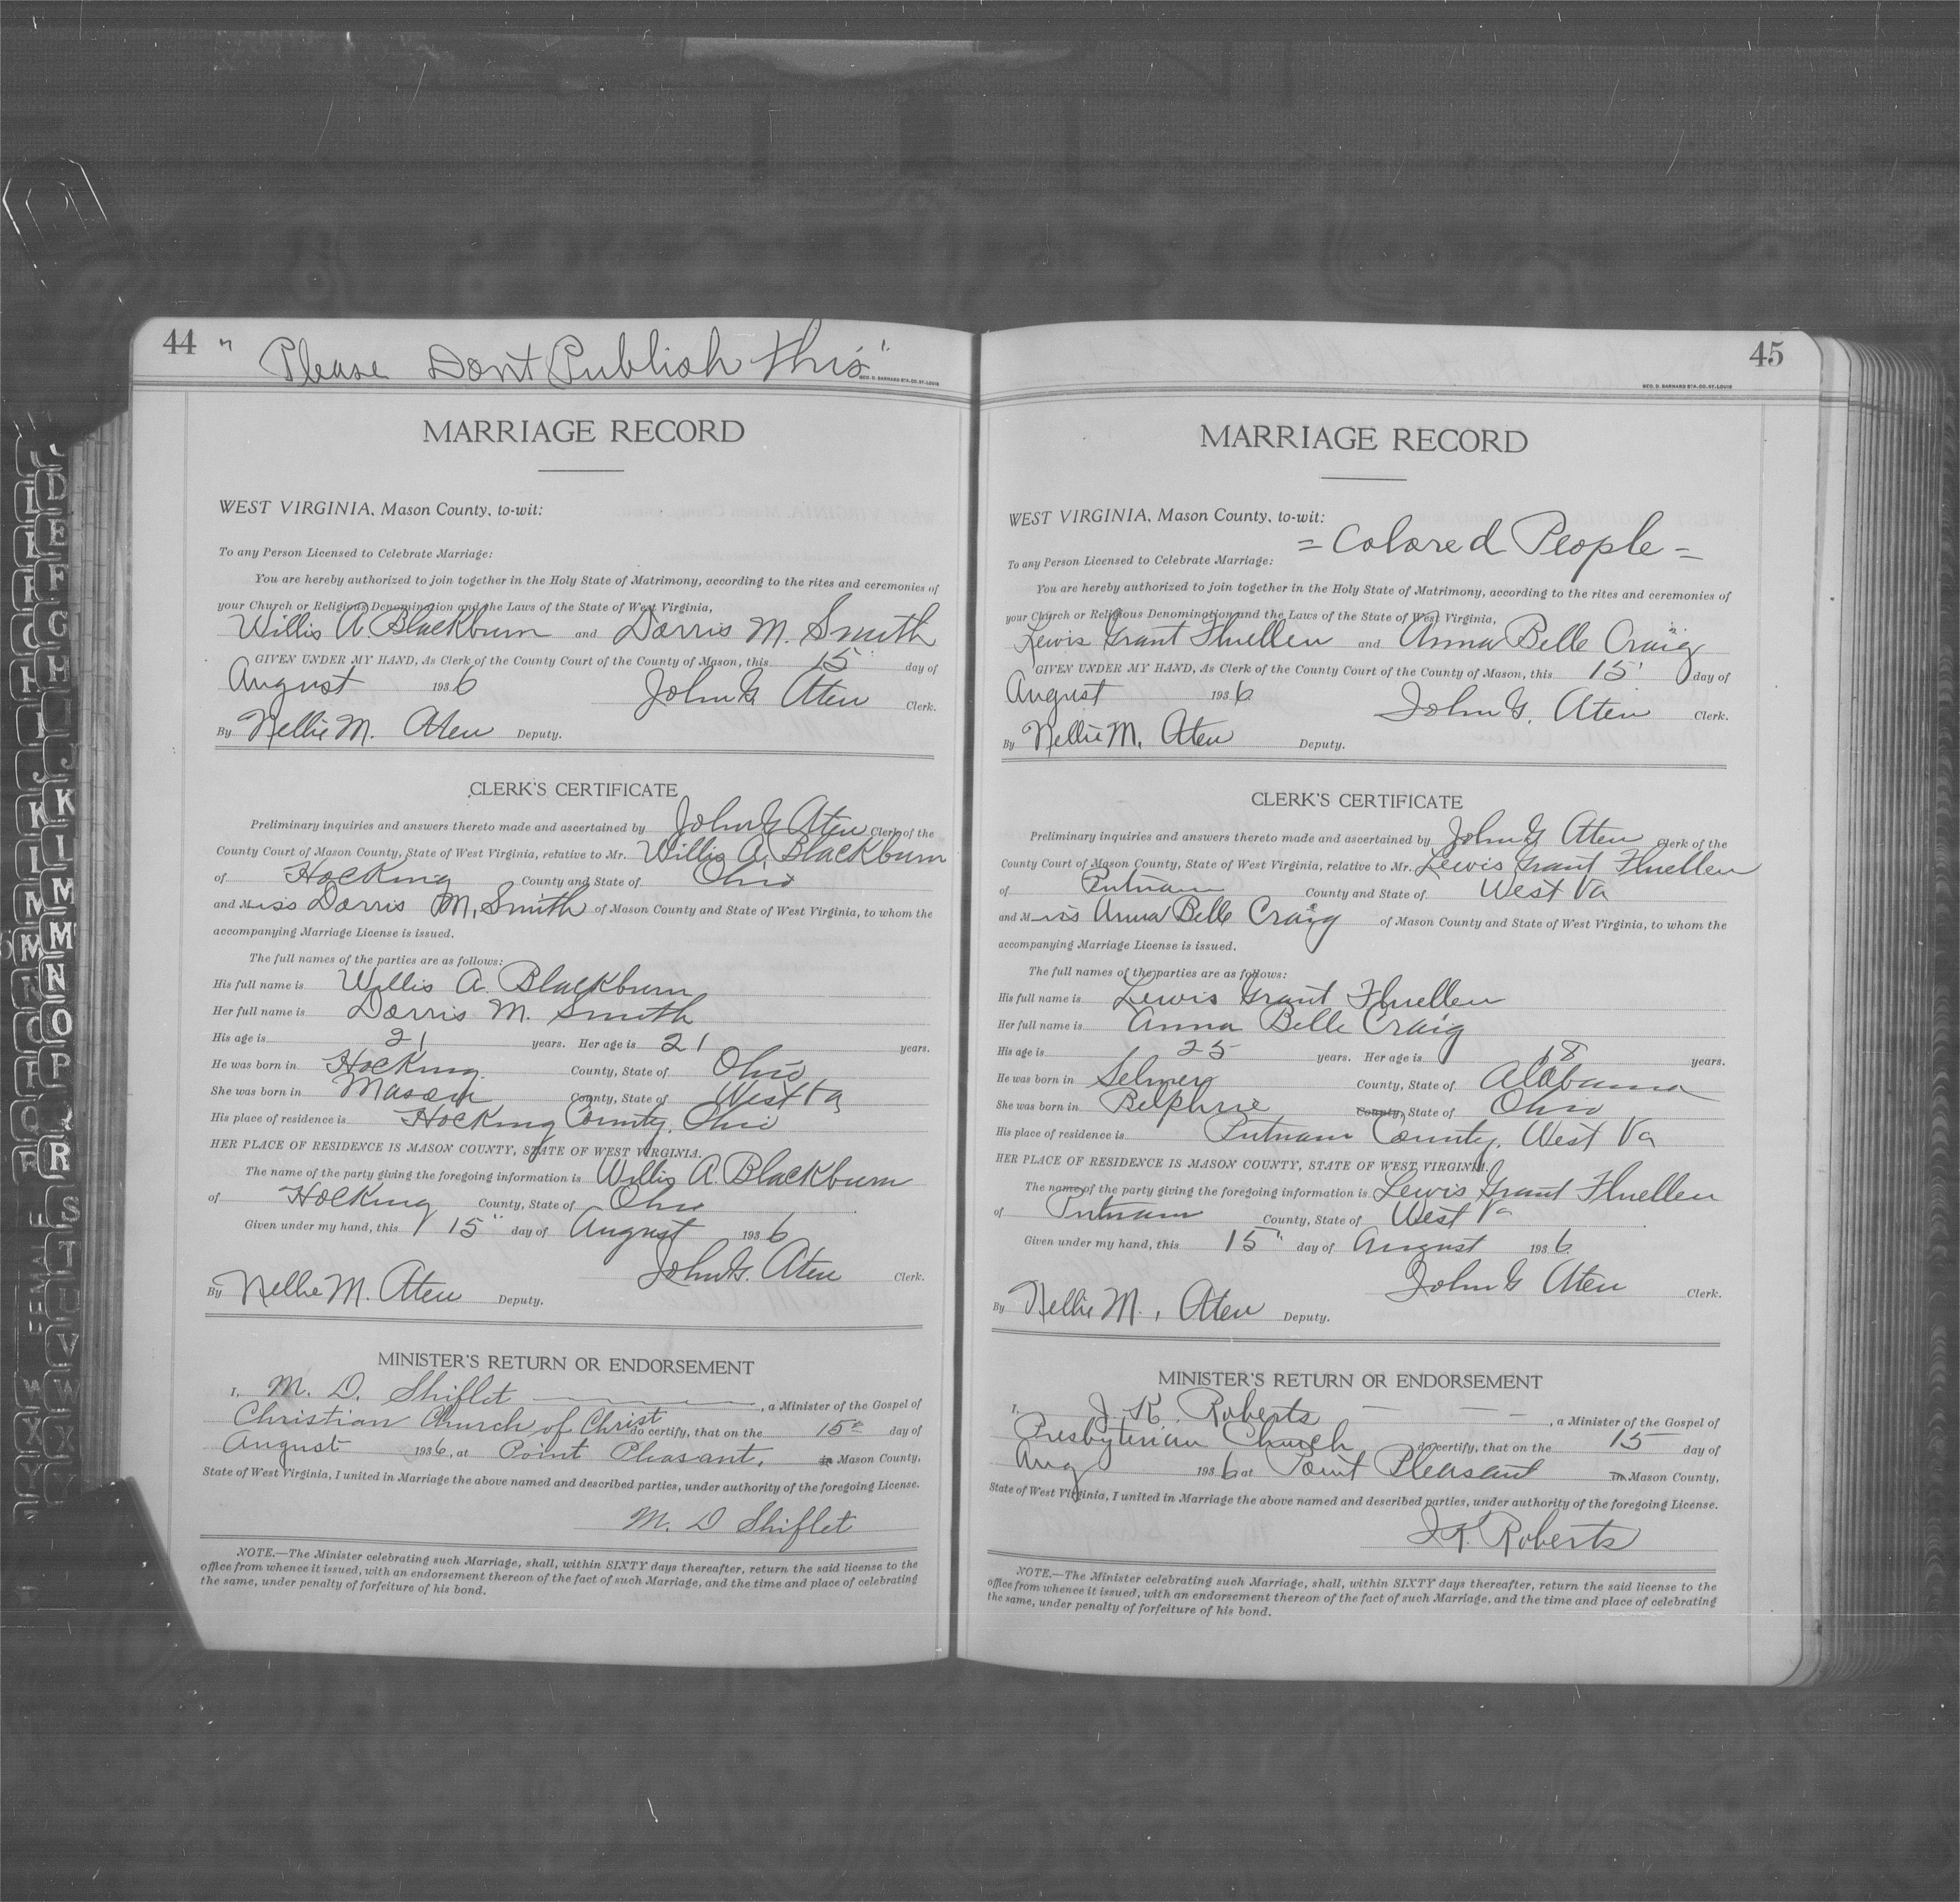 44 " Please Don't Publish this"
GEO. D. BARNARD STA. CO. ST. LOUIS
MARRIAGE RECORD
WEST VIRGINIA, Mason County, to-wit:
To any Person Licensed to Celebrate Marriage:
You are hereby authorized to join together in the Holy State of Matrimony, according to the rites and ceremonies of
your Church or Religious Denomination and the Laws of the State of West Virginia,
Willis A. Blackburn and Dorris M. Smith
GIVEN UNDER MY HAND, As Clerk of the County Court of the County of Mason, this 15" day of
August 1936 John G. Aten Clerk.
By Nellie M. Aten Deputy.
CLERK'S CERTIFICATE
Preliminary inquiries and answers thereto made and ascertained by John G Aten Clerk of the
County Court of Mason County, State of West Virginia, relative to Mr. Willis A. Blackburn
of Hocking County and State of Ohio
and Miss Dorris M. Smith of Mason County and State of West Virginia, to whom the
accompanying Marriage License is issued.
The full names of the parties are as follows:
His full name is Willis A. Blackburn
Her full name is Dorris M. Smith
His age is 21 years. Her age is 21 years.
He was born in Hocking County, State of Ohio
She was born in Mason County, State of West Va
His place of residence is Hocking County, Ohio
HER PLACE OF RESIDENCE IS MASON COUNTY, STATE OF WEST VIRGINIA.
The name of the party giving the foregoing information is Willis A. Blackburn
of Hocking County, State of Ohio
Given under my hand, this 15" day of August 1936
John G. Aten Clerk.
By Nellie M. Aten Deputy.
MINISTER'S RETURN OR ENDORSEMENT
I, M. D. Shiflet , a Minister of the Gospel of
Christian Church of Christ do certify, that on the 15th day of
August 1936, at Point Pleasant, in Mason County,
State of West Virginia, I united in Marriage the above named and described parties, under authority of the foregoing License.
M. D Shiflet
NOTE.—The Minister celebrating such Marriage, shall, within SIXTY days thereafter, return the said license to the
office from whence it issued, with an endorsement thereon of the fact of such Marriage, and the time and place of celebrating
the same, under penalty of forfeiture of his bond.
45
GEO. D. BARNARD STA. CO. ST. LOUIS
MARRIAGE RECORD
WEST VIRGINIA, Mason County, to-wit:
= Colored People =
To any Person Licensed to Celebrate Marriage:
You are hereby authorized to join together in the Holy State of Matrimony, according to the rites and ceremonies of
your Church or Religious Denomination and the Laws of the State of West Virginia,
Lewis Grant Fluellen and Anna Belle Craig
GIVEN UNDER MY HAND, As Clerk of the County Court of the County of Mason, this 15' day of
August 1936 John G. Aten Clerk.
By Nellie M. Aten Deputy.
CLERK'S CERTIFICATE
Preliminary inquiries and answers thereto made and ascertained by John G Aten Clerk of the
County Court of Mason County, State of West Virginia, relative to Mr. Lewis Grant Fluellen
of Putnam County and State of West Va
and Miss Anna Belle Craig of Mason County and State of West Virginia, to whom the
accompanying Marriage License is issued.
The full names of the parties are as follows:
His full name is Lewis Grant Fluellen
Her full name is Anna Belle Craig
His age is 25 years. Her age is 18 years.
He was born in Selmer County, State of Alabama
She was born in Belphrie County, State of Ohio
His place of residence is Putnam County, West Va
HER PLACE OF RESIDENCE IS MASON COUNTY, STATE OF WEST VIRGINIA.
The name of the party giving the foregoing information is Lewis Grant Fluellen
of Putnam County, State of West Va
Given under my hand, this 15" day of August 1936
John G Aten Clerk.
By Nellie M. Aten Deputy.
MINISTER'S RETURN OR ENDORSEMENT
I, J. K. Roberts , a Minister of the Gospel of
Presbyterian Church do certify, that on the 15 day of
Aug 1936 at Point Pleasant in Mason County,
State of West Virginia, I united in Marriage the above named and described parties, under authority of the foregoing License.
J. K. Roberts
NOTE.—The Minister celebrating such Marriage, shall, within SIXTY days thereafter, return the said license to the
office from whence it issued, with an endorsement thereon of the fact of such Marriage, and the time and place of celebrating
the same, under penalty of forfeiture of his bond.